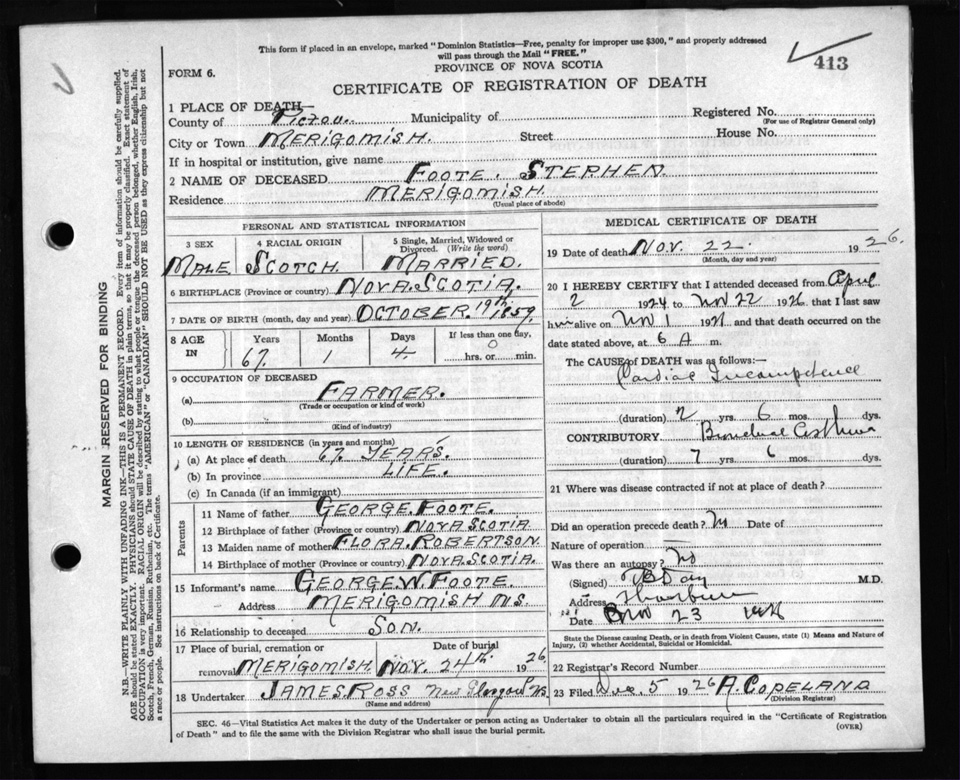 This form if placed in an envelope, marked "Dominion Statistics—Free, penalty for improper use $300," and properly addressed
will pass through the Mail "FREE."
413
PROVINCE OF NOVA SCOTIA
FORM 6.
CERTIFICATE OF REGISTRATION OF DEATH
1 PLACE OF DEATH—
County of Pictou. Municipality of Registered No.
(For use of Registrar General only)
City or Town MERIGOMISH. Street House No.
If in hospital or institution, give name
2 NAME OF DECEASED FOOTE. STEPHEN.
Residence MERIGOMISH.
(Usual place of abode)
PERSONAL AND STATISTICAL INFORMATION
3 SEX 4 RACIAL ORIGIN 5 Single, Married, Widowed or Divorced. (Write the word)
MALE SCOTCH. MARRIED.
6 BIRTHPLACE (Province or country) NOVA. SCOTIA.
7 DATE OF BIRTH (month, day and year) OCTOBER. 19th. 1859.
8 AGE IN Years Months Days If less than one day,
67. 1 4 0 hrs. or min.
9 OCCUPATION OF DECEASED
(a) FARMER.
(Trade or occupation or kind of work)
(b)
(Kind of industry)
10 LENGTH OF RESIDENCE (in years and months)
(a) At place of death 67 YEARS.
(b) In province LIFE.
(c) In Canada (if an immigrant)
Parents
11 Name of father GEORGE. FOOTE.
12 Birthplace of father (Province or country) NOVA SCOTIA
13 Maiden name of mother FLORA. ROBERTSON.
14 Birthplace of mother (Province or country) NOVA. SCOTIA.
15 Informant's name GEORGE. W. FOOTE.
Address MERIGOMISH N.S.
16 Relationship to deceased SON.
17 Place of burial, cremation or removal Date of burial
MERIGOMISH. NOV. 24th. 1926
18 Undertaker JAMES. ROSS New Glasgow N.S.
(Name and address)
MEDICAL CERTIFICATE OF DEATH
19 Date of death NOV. 22. 1926.
(Month, day and year)
20 I HEREBY CERTIFY that I attended deceased from April
2 1924 to Nov 22 1926 that I last saw
him alive on Nov 1 and that death occurred on the
date stated above, at 6 A m.
The CAUSE of DEATH was as follows:—
Cardiac Incompetence
(duration) 2 yrs. 6 mos. dys.
CONTRIBUTORY Bronchial Asthma
(duration) 7 yrs. 6 mos. dys.
21 Where was disease contracted if not at place of death?
Did an operation precede death? No Date of
Nature of operation
Was there an autopsy? No
(Signed) M.D.
Address Thorburn
Date Nov 23 1926
State the Disease causing Death, or in death from Violent Causes, state (1) Means and Nature of
Injury, (2) whether Accidental, Suicidal or Homicidal.
22 Registrar's Record Number
23 Filed Dec. 5 1926 A. COPELAND
(Division Registrar)
SEC. 46—Vital Statistics Act makes it the duty of the Undertaker or person acting as Undertaker to obtain all the particulars required in the "Certificate of Registration
of Death" and to file the same with the Division Registrar who shall issue the burial permit.
(OVER)
MARGIN RESERVED FOR BINDING
N.B.—WRITE PLAINLY WITH UNFADING INK—THIS IS A PERMANENT RECORD. Every item of information should be carefully supplied.
AGE should be stated EXACTLY. PHYSICIANS should STATE CAUSE OF DEATH in plain terms, so that it may be properly classified. Exact statement of
OCCUPATION is very important. RACIAL ORIGIN will be described by stating to what people or tongue the deceased person belonged, whether English, Irish,
Scotch, French, German, Russian, Ruthenian, etc. The terms "AMERICAN" or "CANADIAN" SHOULD NOT BE USED as they express citizenship but not
a race or people. See instructions on back of Certificate.